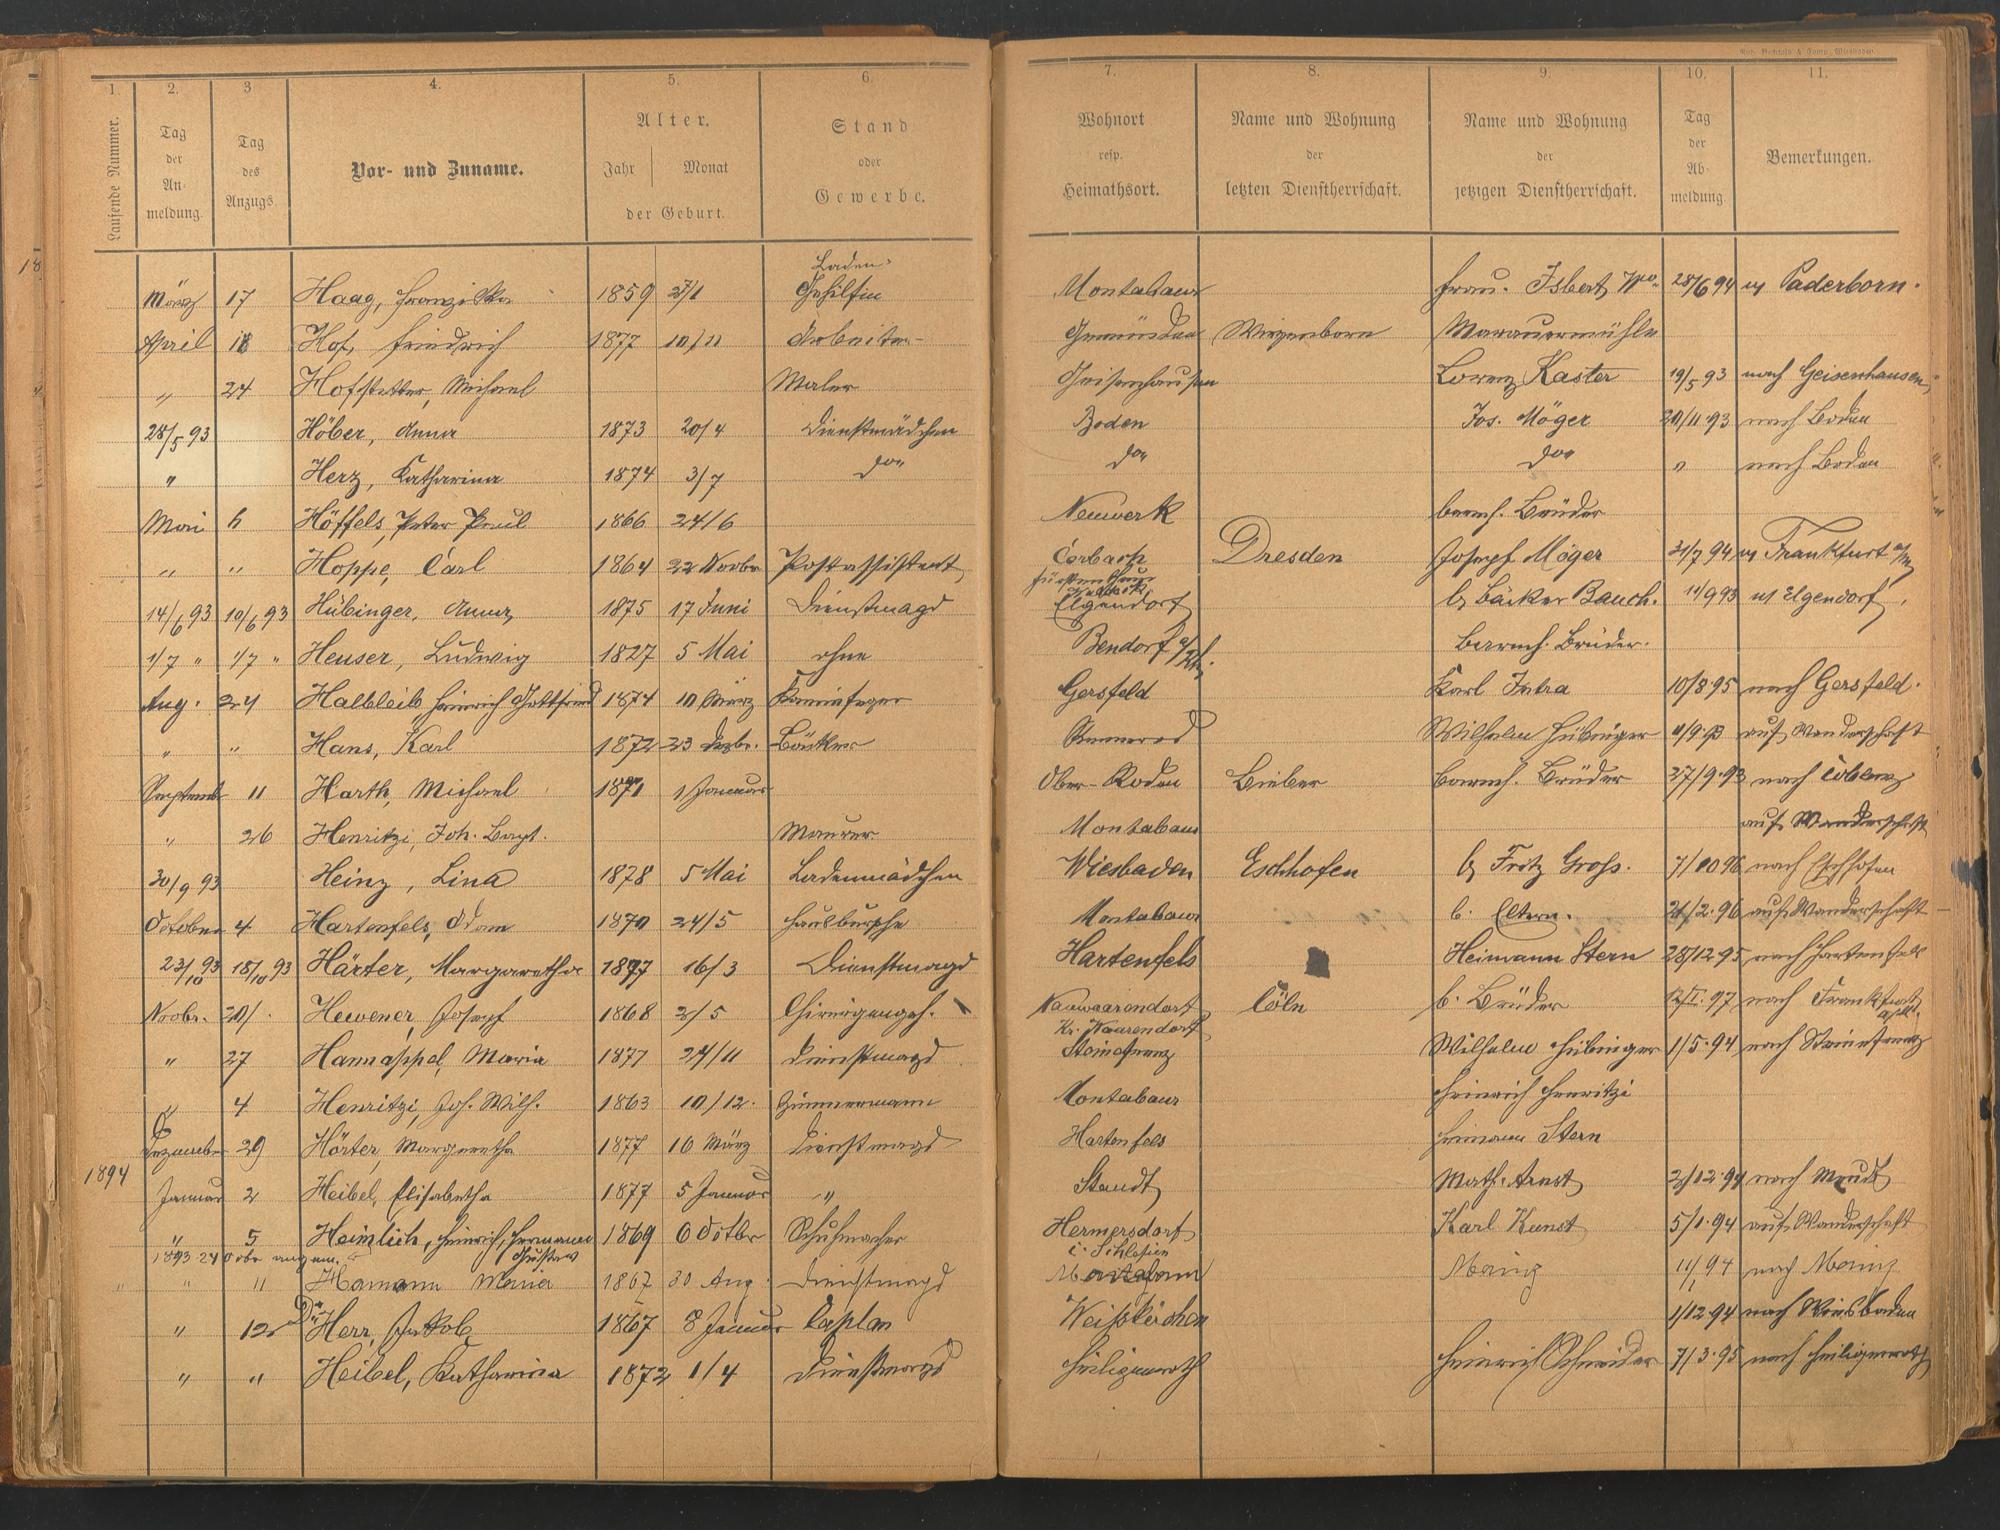 1. 2. 3 4. 5. 6. 7. 8. 9. 10. 11.
Laufende Nummer. Tag der Anmeldung. Tag des Anzugs. Vor- und Zuname. Alter. Jahr Monat der Geburt. Stand oder Gewerbe. Wohnort resp. Heimathsort. Name und Wohnung der letzten Dienstherrschaft. Name und Wohnung der jetzigen Dienstherrschaft. Tag der Abmeldung Bemerkungen.
März 17 Haag, Franziska 1859 27/1 Laden-Gehilfin Montabaur Frau Isbert Ww. 28/6 94 n/ Paderborn.
April 18 Hof, Friedrich 1877 10/11 Arbeiter Gemünden Wirzenborn Marauermühle
" 24 Hofstetter, Michael Maler Geisenhausen Lorenz Kaster 19/5 93 nach Geisenhausen
28/5 93 Höber, Anna 1873 20/4 Dienstmädchen Boden Jos. Möger 20/11 93 nach Boden
" Herz, Katharina 1874 3/7 do do do " nach Boden
Mai 6 Höffels, Peter Paul 1866 24/6 Neuwerk barmh. Brüder
" " Hoppe, Carl 1864 22 Novbr Postassistent Corbach Fürstenthum Waldeck Dresden Joseph Möger 31/7 94 n/ Frankfurt a/M
14/6 93 10/6 93 Hübinger, Anna 1875 17 Juni Dienstmagd Elgendorf b/ Bäcker Bauch. 11/9 93 n/ Elgendorf.
1/7 " 1/7 " Heuser, Ludwig 1827 5 Mai ohne Bendorf a/Rh. Barmh. Brüder.
Aug. 24 Halbleib, Heinrich Gottfried 1874 10 März Kaminfeger Gersfeld Karl Intra 10/8 95 nach Gersfeld.
" " Hans, Karl 1872 23 Dezbr. Bäcker Rennerod Wilhelm Hübinger 11/9 93 auf Wanderschaft
September 11 Harth, Michael 1871 1 Januar Ober-Roden Bieber Barmh. Brüder 27/9 93 nach Coblenz
" 26 Henritzi, Joh. Bapt. Maurer Montabaur auf Wanderschaft
30/9 93 Heinz, Lina 1878 5 Mai Ladenmädchen Wiesbaden Eschhofen b/ Fritz Groß. 7/10 96 nach Eschhofen
October 4. Hartenfels, Adam 1870 24/5 Hausbursche Montabaur b. Eltern. 21/2. 96 auf Wanderschaft
23/10 93 18/10 93 Härter, Margaretha 1877 16/3 Dienstmagd Hartenfels Heimann Stern 28/12 95 nach Hartenfels
Novbr. 20/. Hewener, Joseph 1868 2/5 Chirurgengeh. Kr. Waarendorf Cöln b. Brüder 12/I. 97 nach Frankfurt a/M.
" 27 Hannappel, Maria 1877 24/11 Dienstmagd Steinefrenz Wilhelm Hübinger 1/5. 94 nach Steinefrenz
" 4 Henritzi, Joh. Wilh. 1863 10/12. Zimmermann Montabaur Heinrich Henritzi
Dezember 29 Härter, Margaretha 1877 16 März Dienstmagd Hartenfels Heimann Stern
1894 Januar 2 Heibel, Elisabetha 1877 5 Januar " Staudt Math. Arnst 2/12 94 nach Meudt
" 5 Heimlich, Heinrich, Hermann Gustav 1869 6 Octbr Schuhmacher Hermersdorf i. Schlesien Karl Kunst 5/1. 94 auf Wanderschaft
1893. 24 Octbr angem.
" " " Hamann Maria 1867 30 Aug. Dienstmagd Mainz 11/ 94 nach Mainz
" 12 Herr, Jakob 1867 8 Januar Caplan Weißkirchen 1/12 94 nach Wiesbaden
" " Heibel, Katharina 1872 1/4 Dienstmagd Heiligenroth Heinrich Schneider 7/3. 95 nach Heiligenroth